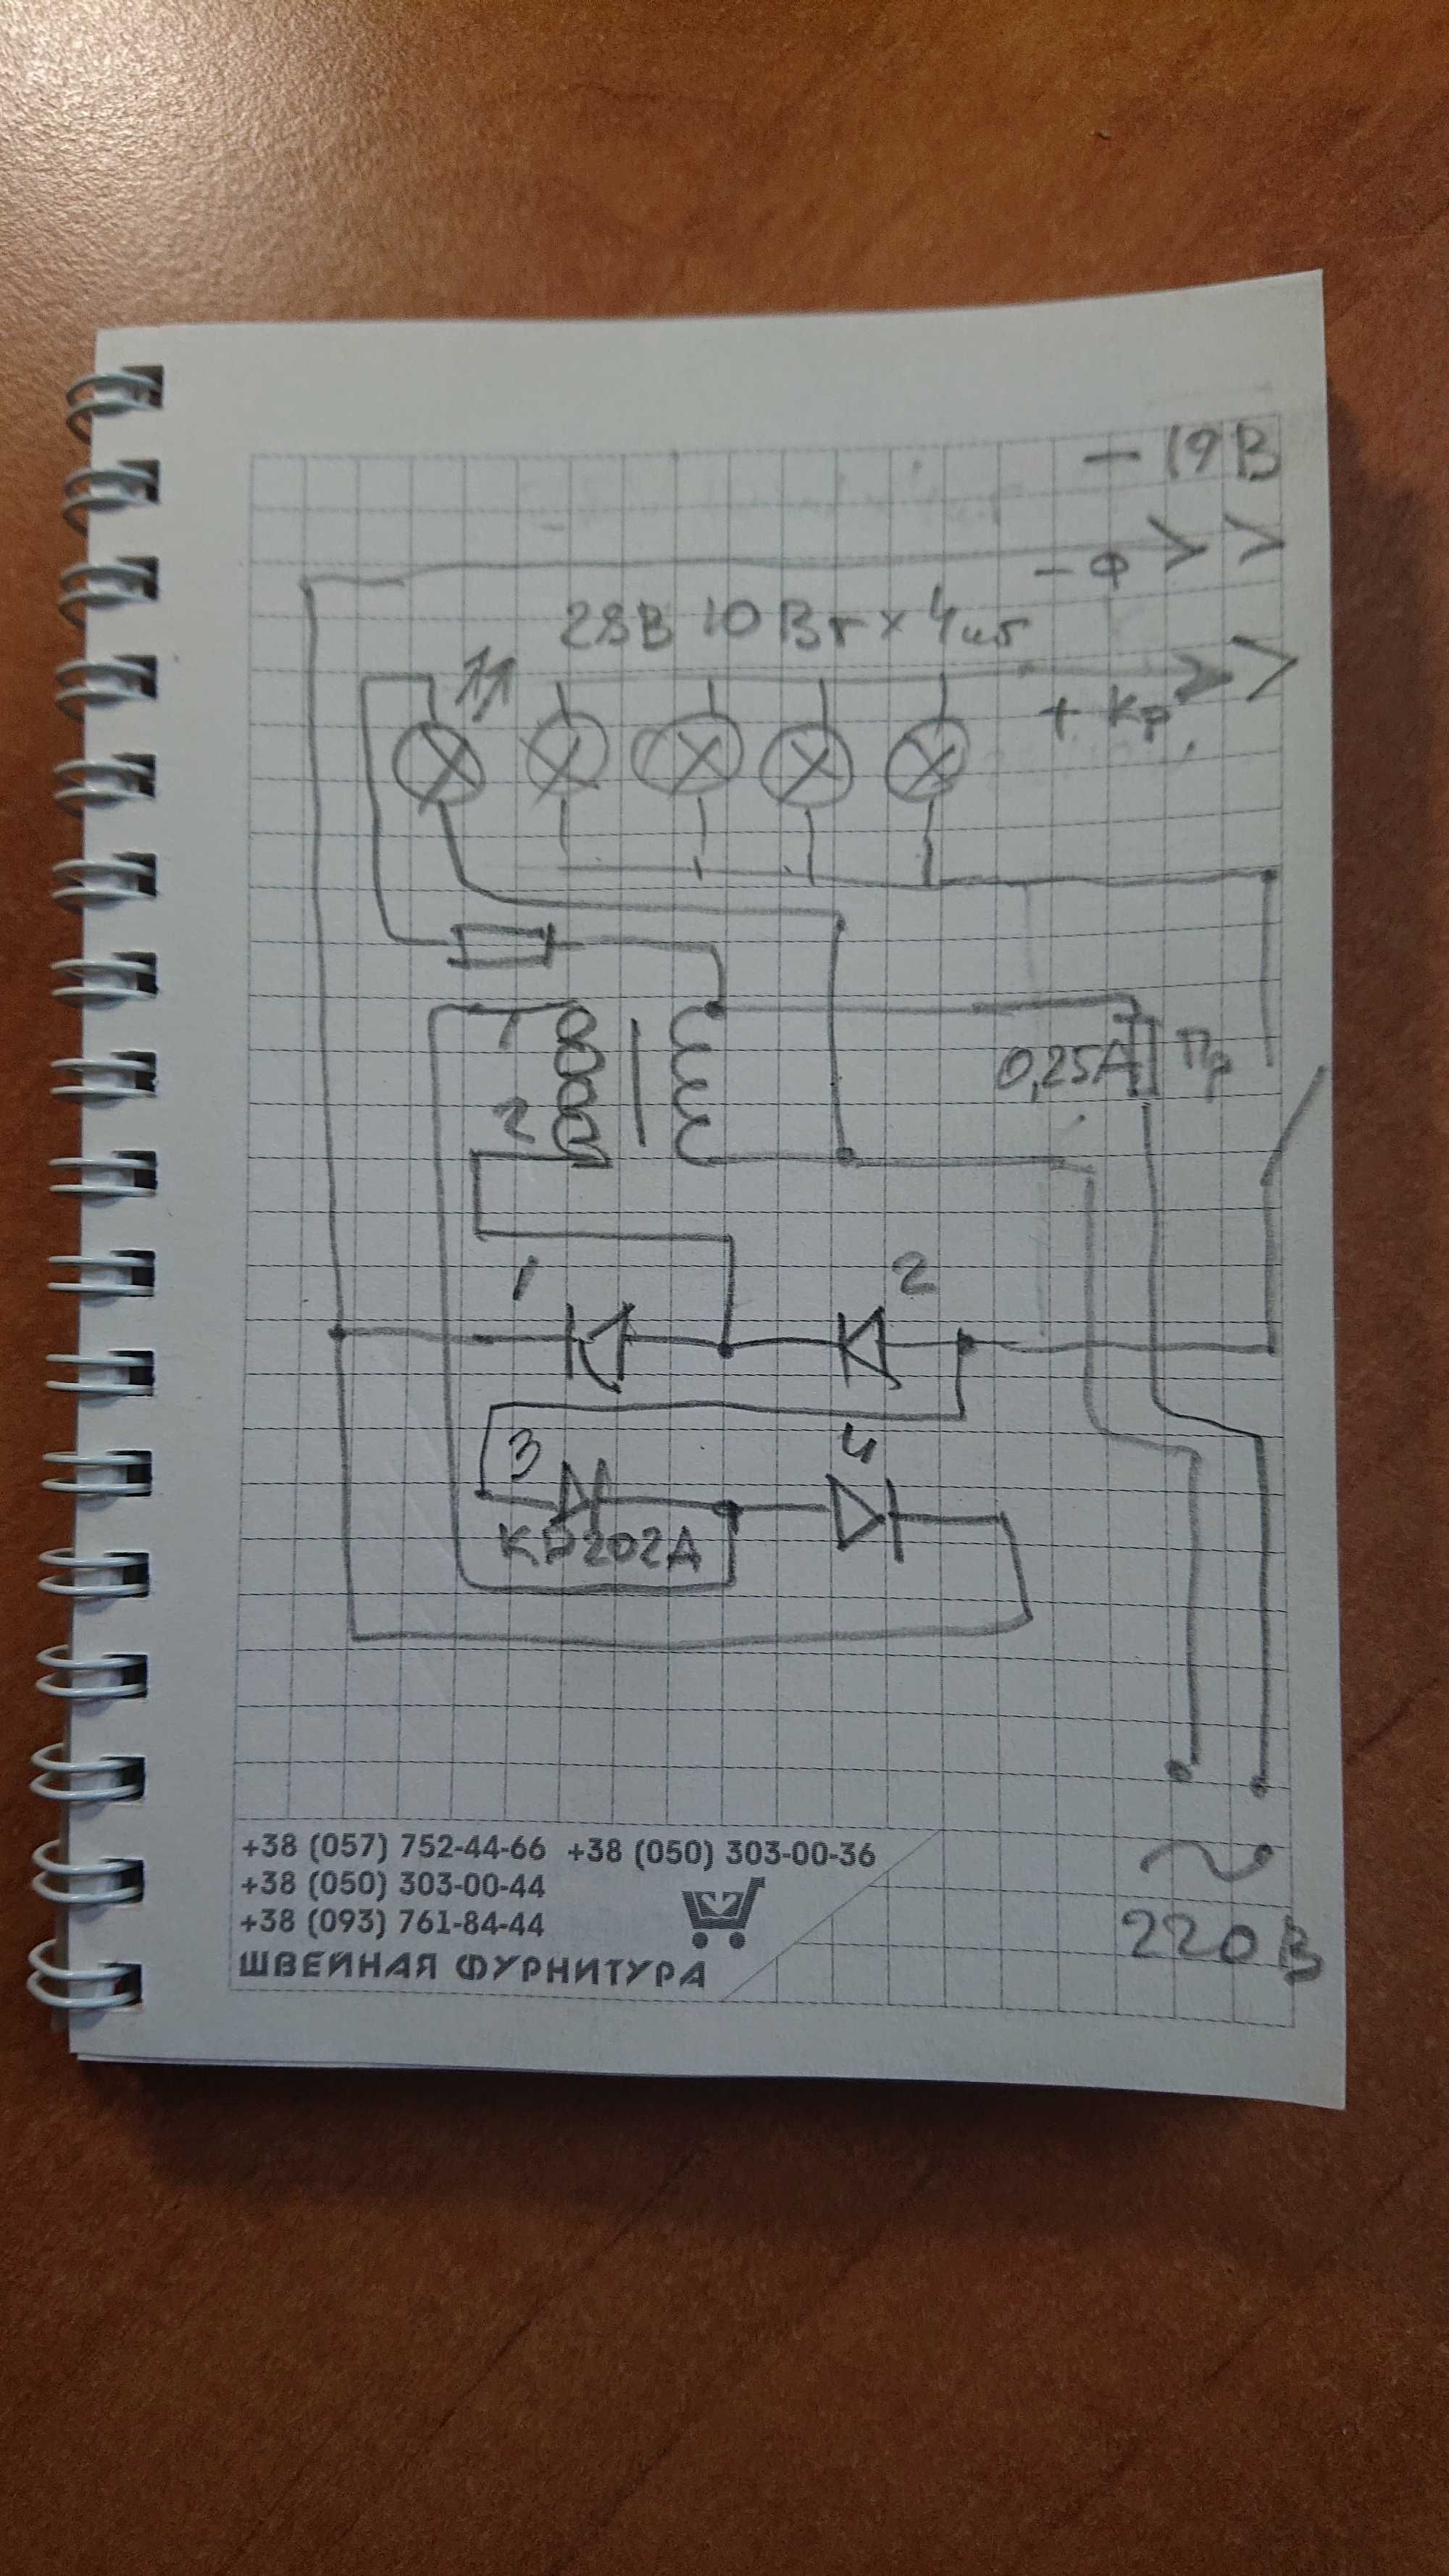 - 19 В
- Ф
28В 10 Вт х 4 шт
+ Кр.
1
0,25А Пр
2
1 2
3 4
КД202Д
+38 (057) 752-44-66 +38 (050) 303-00-36
+38 (050) 303-00-44
+38 (093) 761-84-44
ШВЕЙНАЯ ФУРНИТУРА
~
220 В